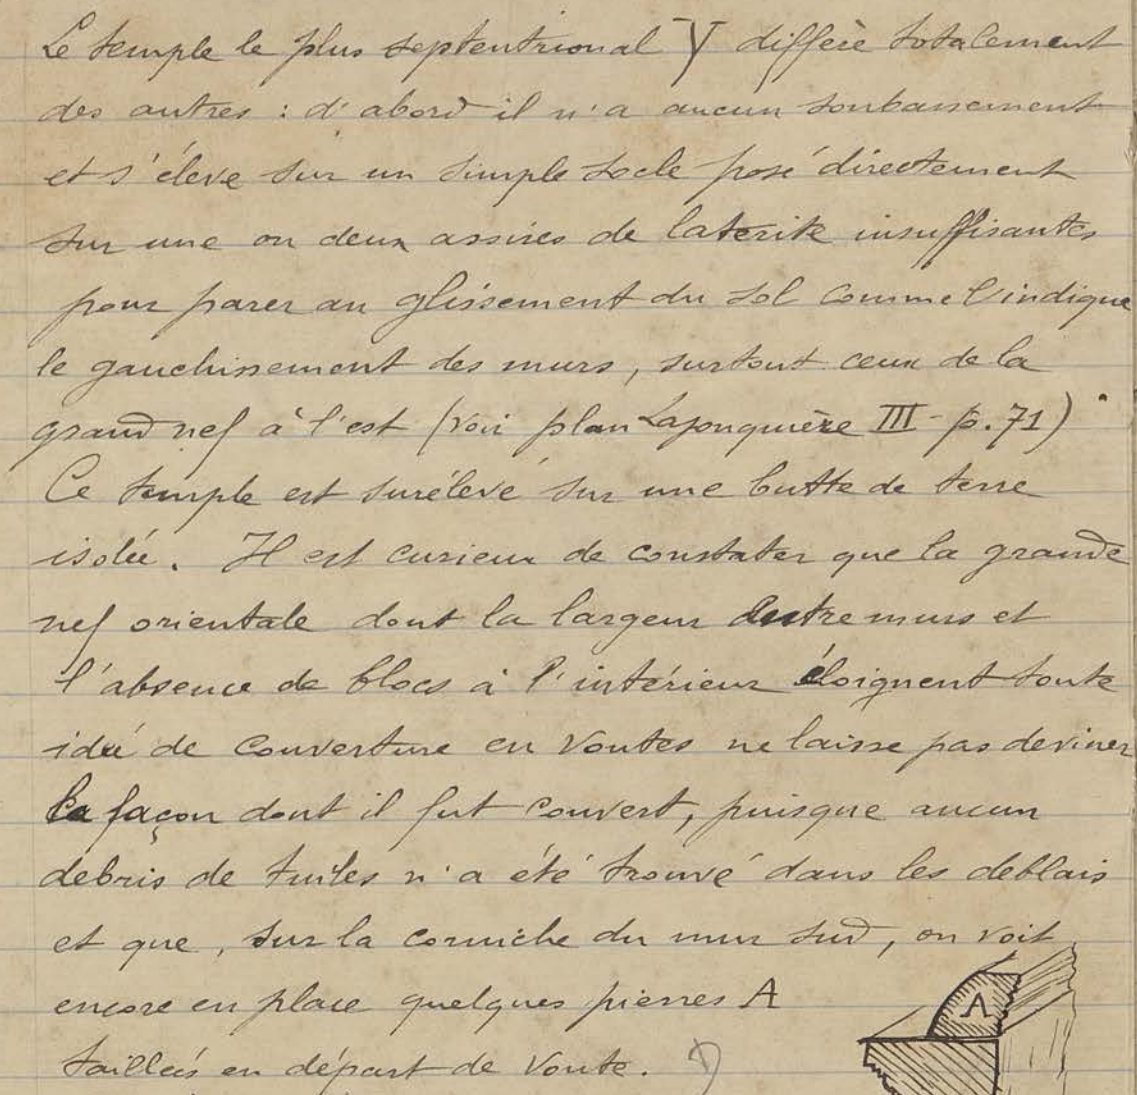 Le temple le plus septentrional Y diffère totalement
des autres : d'abord il n'a aucun soubassement
et s'élève sur un simple socle posé directement
sur une ou deux assises de laterite insuffisantes
pour parer au glissement du sol comme l'indique
le gauchissement des murs, surtout ceux de la
grand nef à l'est (voir plan Lajonquière III - p. 71)
Ce temple est surélevé sur une butte de terre
isolée. Il est curieux de constater que la grande
nef orientale dont la largeur entre murs et
l'absence de blocs à l'intérieur éloignent toute
idée de couverture en voutes ne laisse pas deviner
la façon dont il fut couvert, puisque aucun
debris de tuiles n'a été trouvé dans les déblais
et que, sur la corniche du mur sud, on voit
encore en place quelques pierres A
taillées en départ de voute.
A